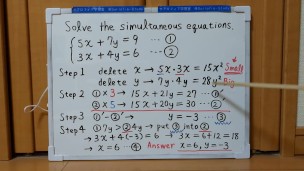 Solve the simultaneous equations.
5x + 7y = 9 … ①
3x + 4y = 6 … ②
Step 1 delete x → 5x·3x = 15x² Small
delete y → 7y·4y = 28y² Big
Step 2 ①×3 → 15x + 21y = 27 … ①'
②×5 → 15x + 20y = 30 … ②'
Step 3 ①'-②' → y = -3 … ③
Step 4 ①7y > ②4y → put ③ into ②
→ 3x + 4(-3) = 6 → 3x = 6+12 = 18
→ x = 6 … ④ Answer x = 6, y = -3